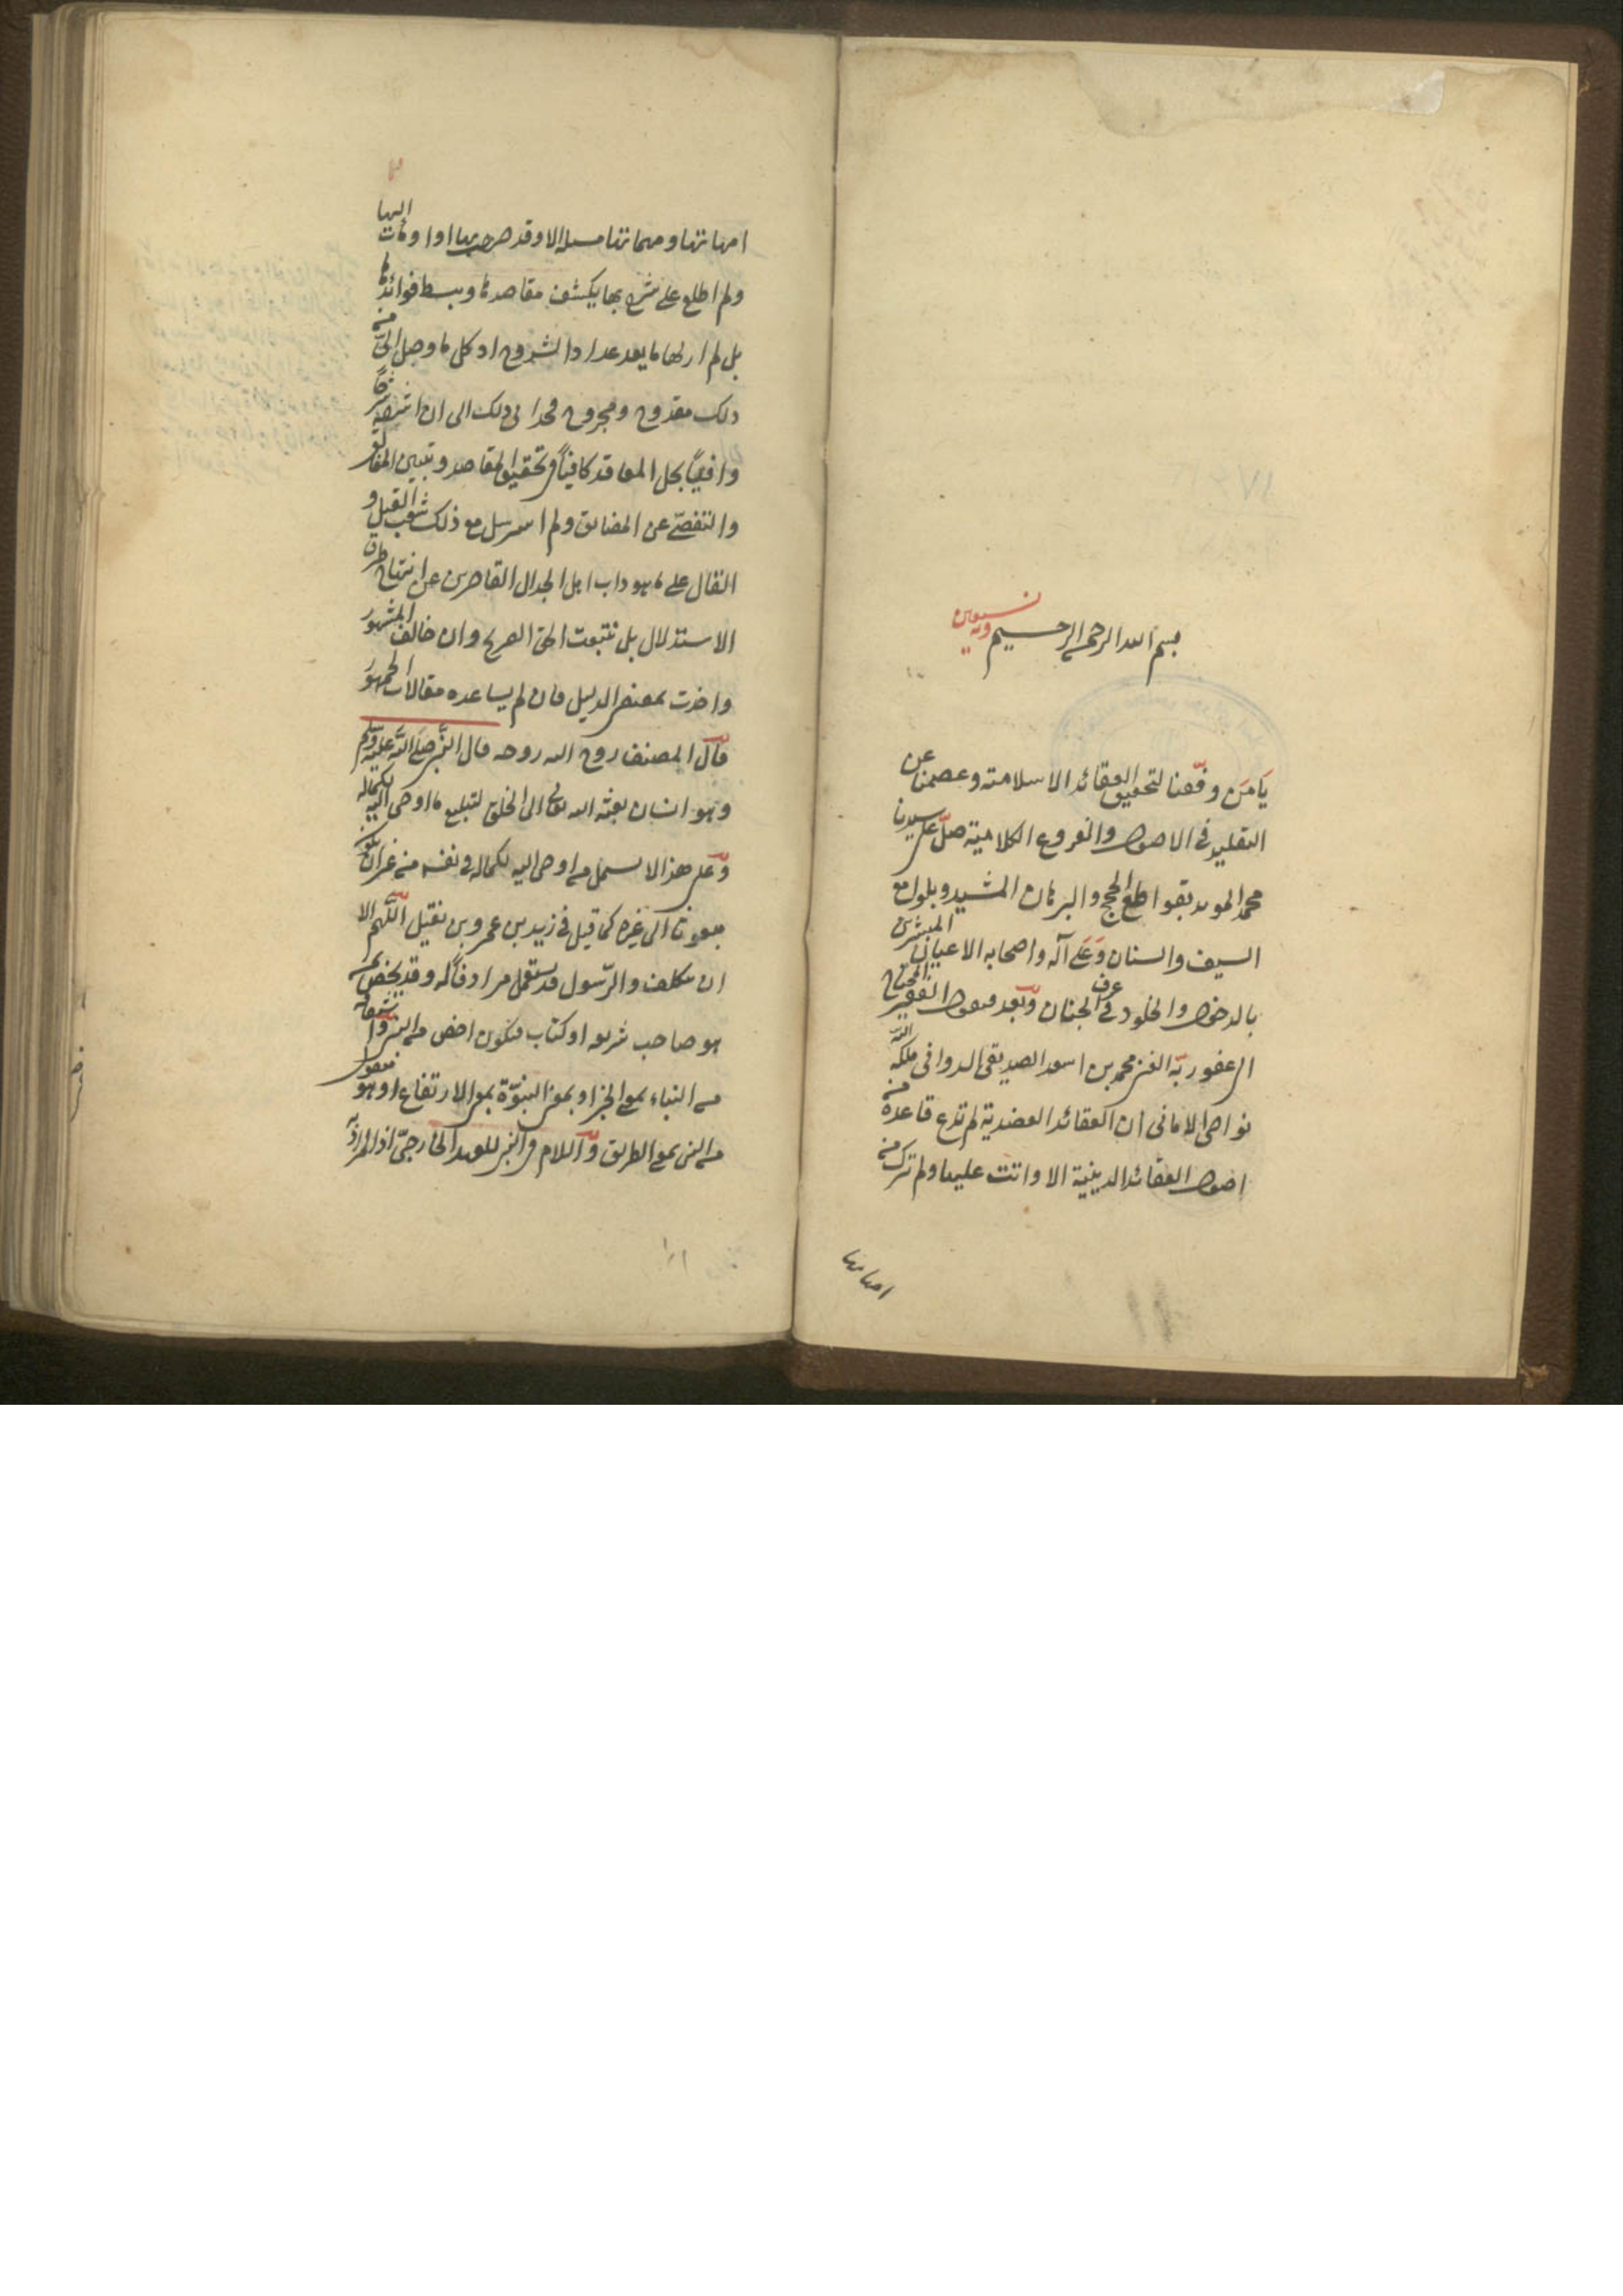 بسم الله الرحمن الرحيم وبه نستعين
يا من وفقنا لتحقيق العقائد الاسلامية وعصمنا عن
التقليد في الاصول والفروع الكلامية صل على سيدنا
محمد المويد بقواطع الحجج والبرهان المشيد وبلوامع
السيف والسنان وعلى آله واصحابه الاعيان المبشرين
بالدخول والخلود في غرف الجنان وبعد فيقول الفقير المحتاج
الى عفو ربه الغني محمد بن اسعد الصديقي الدواني ملكه الله
نواصي الاماني ان العقائد العضدية لم تدع قاعدة من
اصول العقائد الدينية الا واتت عليها ولم تترك من
امهاتها
امهاتها ومهماتها مسئلة الا وقد صرحت بها او اومأت اليها
ولم اطلع على شرح بها يكشف مقاصدها ويبسط فوائدها
بل لم ار لها ما يعد عداد الشروح اذ كل ما وصل الي من
ذلك مقدوح ومجروح فحداني ذلك الى ان اشرحه شرحا
وافيا بحل المعاقد كافيا في تحقيق المقاصد وتبيين المغالق
والتفصي عن المضايق ولم استرسل مع ذلك شعب القيل و
القال على ما هو داب اهل الجدال القاصرين عن انتهاج طرق
الاستدلال بل تتبعت الحق الصريح وان خالف المشهور
واخذت بمقتضى الدليل فان لم يساعده مقالات الجمهور
قال المصنف روح الله روحه قال النبي صلى الله عليه وسلم
وهو انسان بعثه الله تعالى الى الخلق لتبليغ ما اوحى اليه
وعلى هذا لا يشمل من اوحي اليه لكماله في نفسه من غير ان يكون
مبعوثا الى غيره كما قيل في زيد بن عمرو بن نفيل اللهم الا
ان يتكلف والرسول قد يستعمل مرادفا له وقد يخص بمن
هو صاحب شريعة او كتاب فيكون اخص من النبي واشتقاقه
من النباء بمعنى الخبر او بمعنى النبوة بمعنى الارتفاع او هو منقول
من النبي بمعنى الطريق واللام في النبي للعهد الخارجي اذ المراد به